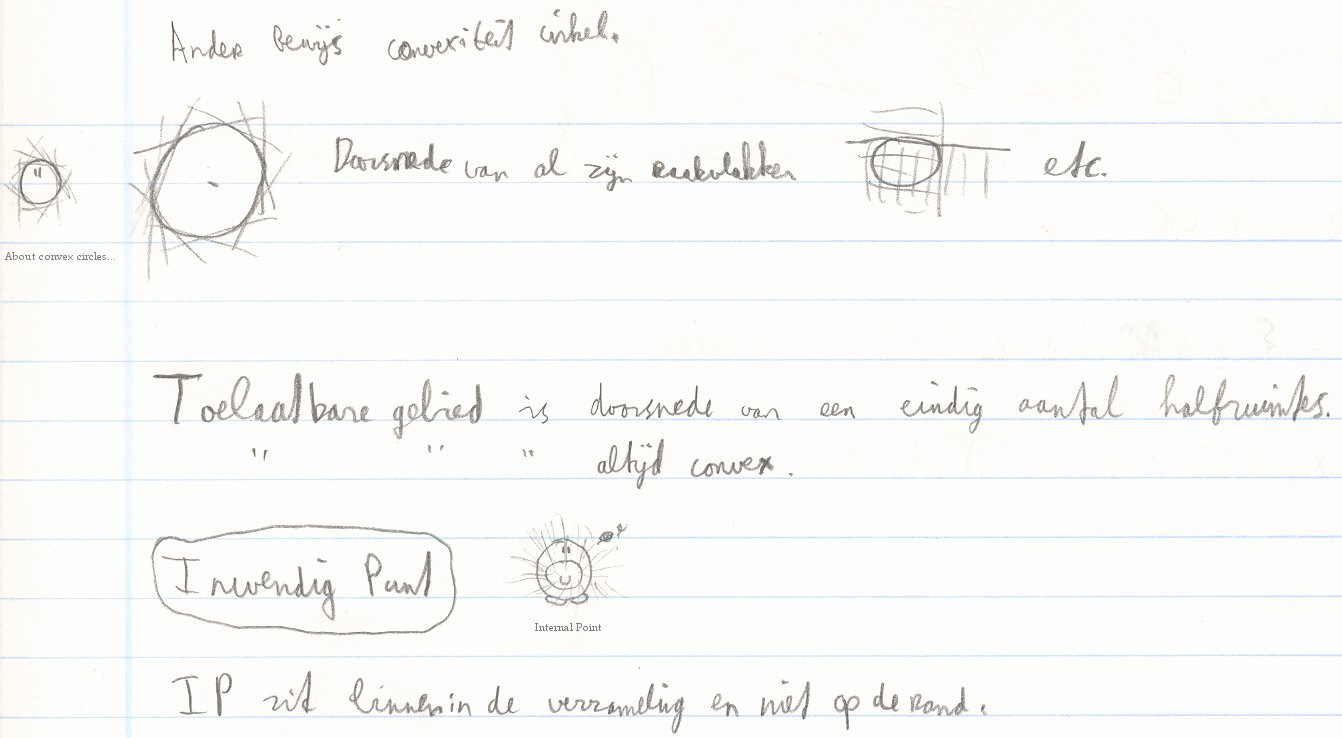 Ander Bewijs convexiteit cirkel.
Doorsnede van al zijn raakvlakken etc.
About convex circles...
Toelaatbare gebied is doorsnede van een eindig aantal halfruimtes.
" " " altijd convex.
Inwendig Punt
Internal Point
IP zit binnenin de verzameling en niet op de rand.